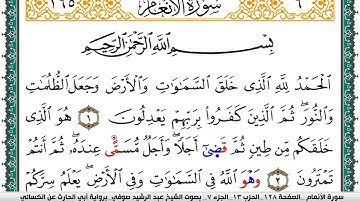 سورة الأنعام
١٦٥ ٦
بِسْمِ اللَّهِ الرَّحْمَٰنِ الرَّحِيمِ
الْحَمْدُ لِلَّهِ الَّذِي خَلَقَ السَّمَاوَاتِ وَالْأَرْضَ وَجَعَلَ الظُّلُمَاتِ
وَالنُّورَ ۖ ثُمَّ الَّذِينَ كَفَرُوا بِرَبِّهِمْ يَعْدِلُونَ ١ هُوَ الَّذِي
خَلَقَكُم مِّن طِينٍ ثُمَّ قَضَىٰ أَجَلًا ۖ وَأَجَلٌ مُّسَمًّى عِندَهُ ۖ ثُمَّ أَنتُمْ
تَمْتَرُونَ ٢ وَهْوَ اللَّهُ فِي السَّمَاوَاتِ وَفِي الْأَرْضِ ۖ يَعْلَمُ سِرَّكُمْ
سورة الأنعام . الصفحة ١٢٨ . الحزب ١٣ . الجزء ٧ . بصوت الشيخ عبد الرشيد صوفي . برواية أبي الحارث عن الكسائي